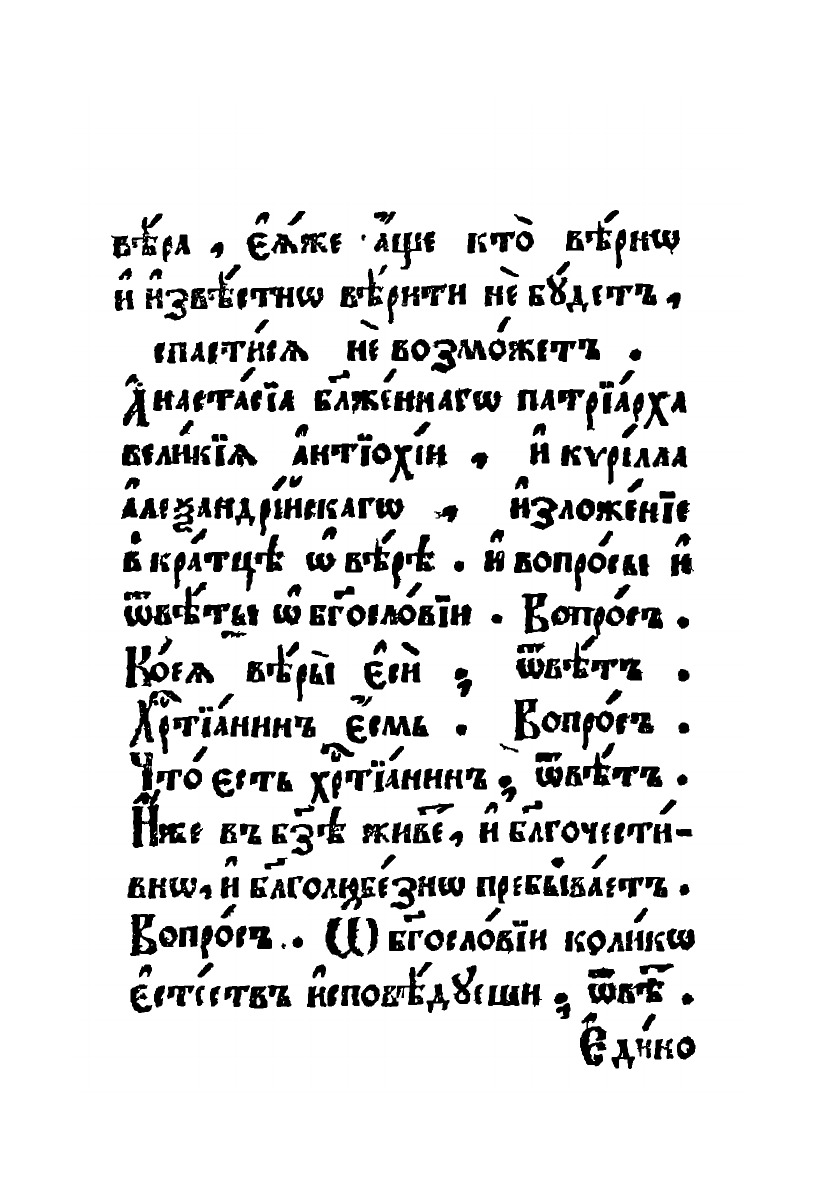 вѣ́ра , є҆ѧ́же а҆́ще кто̀ вѣ́рнѡ
и҆ и҆звѣ́стнѡ вѣ́рити нѐ бꙋ́детъ ,
спасти́сѧ нѐ возмо́жетъ .
А҆наста́сїа бл҃же́ннагѡ патрїа́рха
вели́кїѧ а҆нтїохі́и , и҆ кѵрі́лла
а҆леѯандрі́йскагѡ , и҆зложе́нїе
в кра́тцѣ ѡ҆ вѣ́рѣ . и҆ вопро́сы и҆
ѿвѣ́ты ѡ҆ бг҃осло́вїи . Вопро́съ .
Ко́еѧ вѣ́ры̀ є҆сѝ ; ѿвѣ́тъ .
Хрⷭ҇тїа́нинъ є҆́смь . Вопро́съ .
Что́ єсть хрⷭ҇тїа́нинъ ; ѿвѣ́тъ .
И҆́же въ бз҃ѣ живеⷮ , и҆ бл҃гочести́-
внѡ , и҆ бл҃голюбе́знѡ пребыва́етъ .
Вопро́съ . Ѽ бг҃осло́вїи коли́кѡ
є҆сте́ствъ и҆сповѣ́дꙋеши ; ѿвѣⷮ .
Є҆ди́но